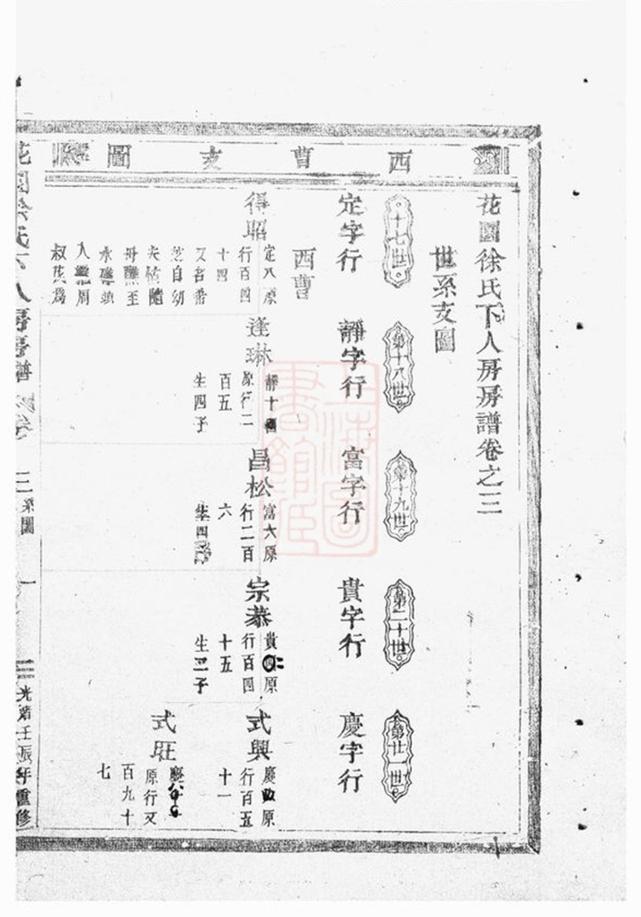 西曹支圖
花園徐氏下人房房譜卷之三
世系支圖
十七世
第十八世
第十九世
第二十世
第廿一世
定字行
靜字行
富字行
貴字行
慶字行
西曹
得昭
定八原
行百四
十四
又名番
芝自幼
夫
母醮至
永
入繼
叔
逢琳
靜十
原行二
百五
生四子
昌松
富六原
行二百
六
生四
宗恭
貴 原
行百四
十五
生二子
式興
慶 原
行百五
十一
式旺
慶
原行又
百九十
七
花園徐氏下人房房譜 卷之三 系圖 一
光緒壬辰年重修
上海圖書館藏